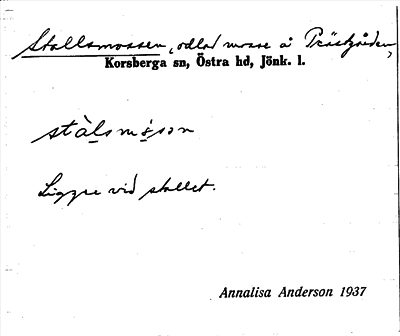 Stallsmossen, odlad mosse å Prästgården,
Korsberga sn, Östra hd, Jönk. l.
stàlsmósən
Ligger vid stallet.
Annalisa Anderson 1937